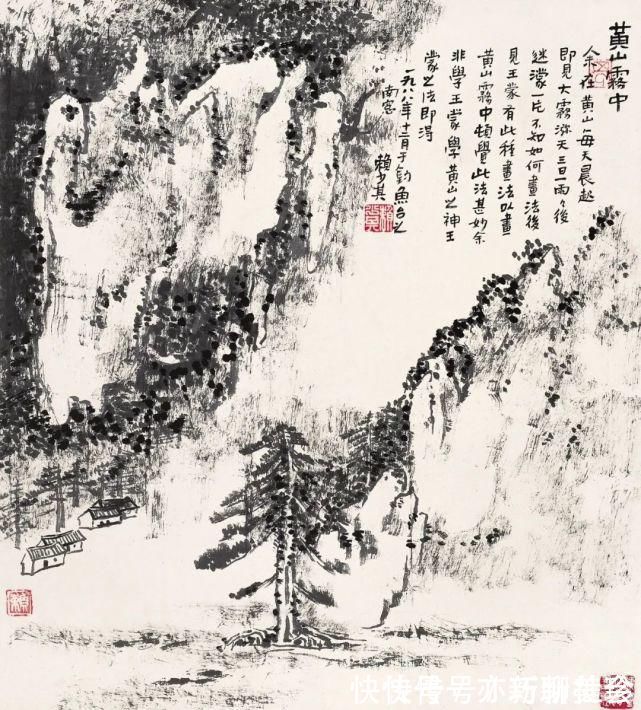 黄山霧中
余在黄山每天晨起
即見大霧弥天三日一雨々後
迷濛一片不知如何畫法後
見王蒙有此種畫法以畫
黄山霧中頓覺此法甚妙余
非學王蒙學黄山之神王
蒙之法即得
一九八八年十二月于釣魚台之
南窓 賴少其